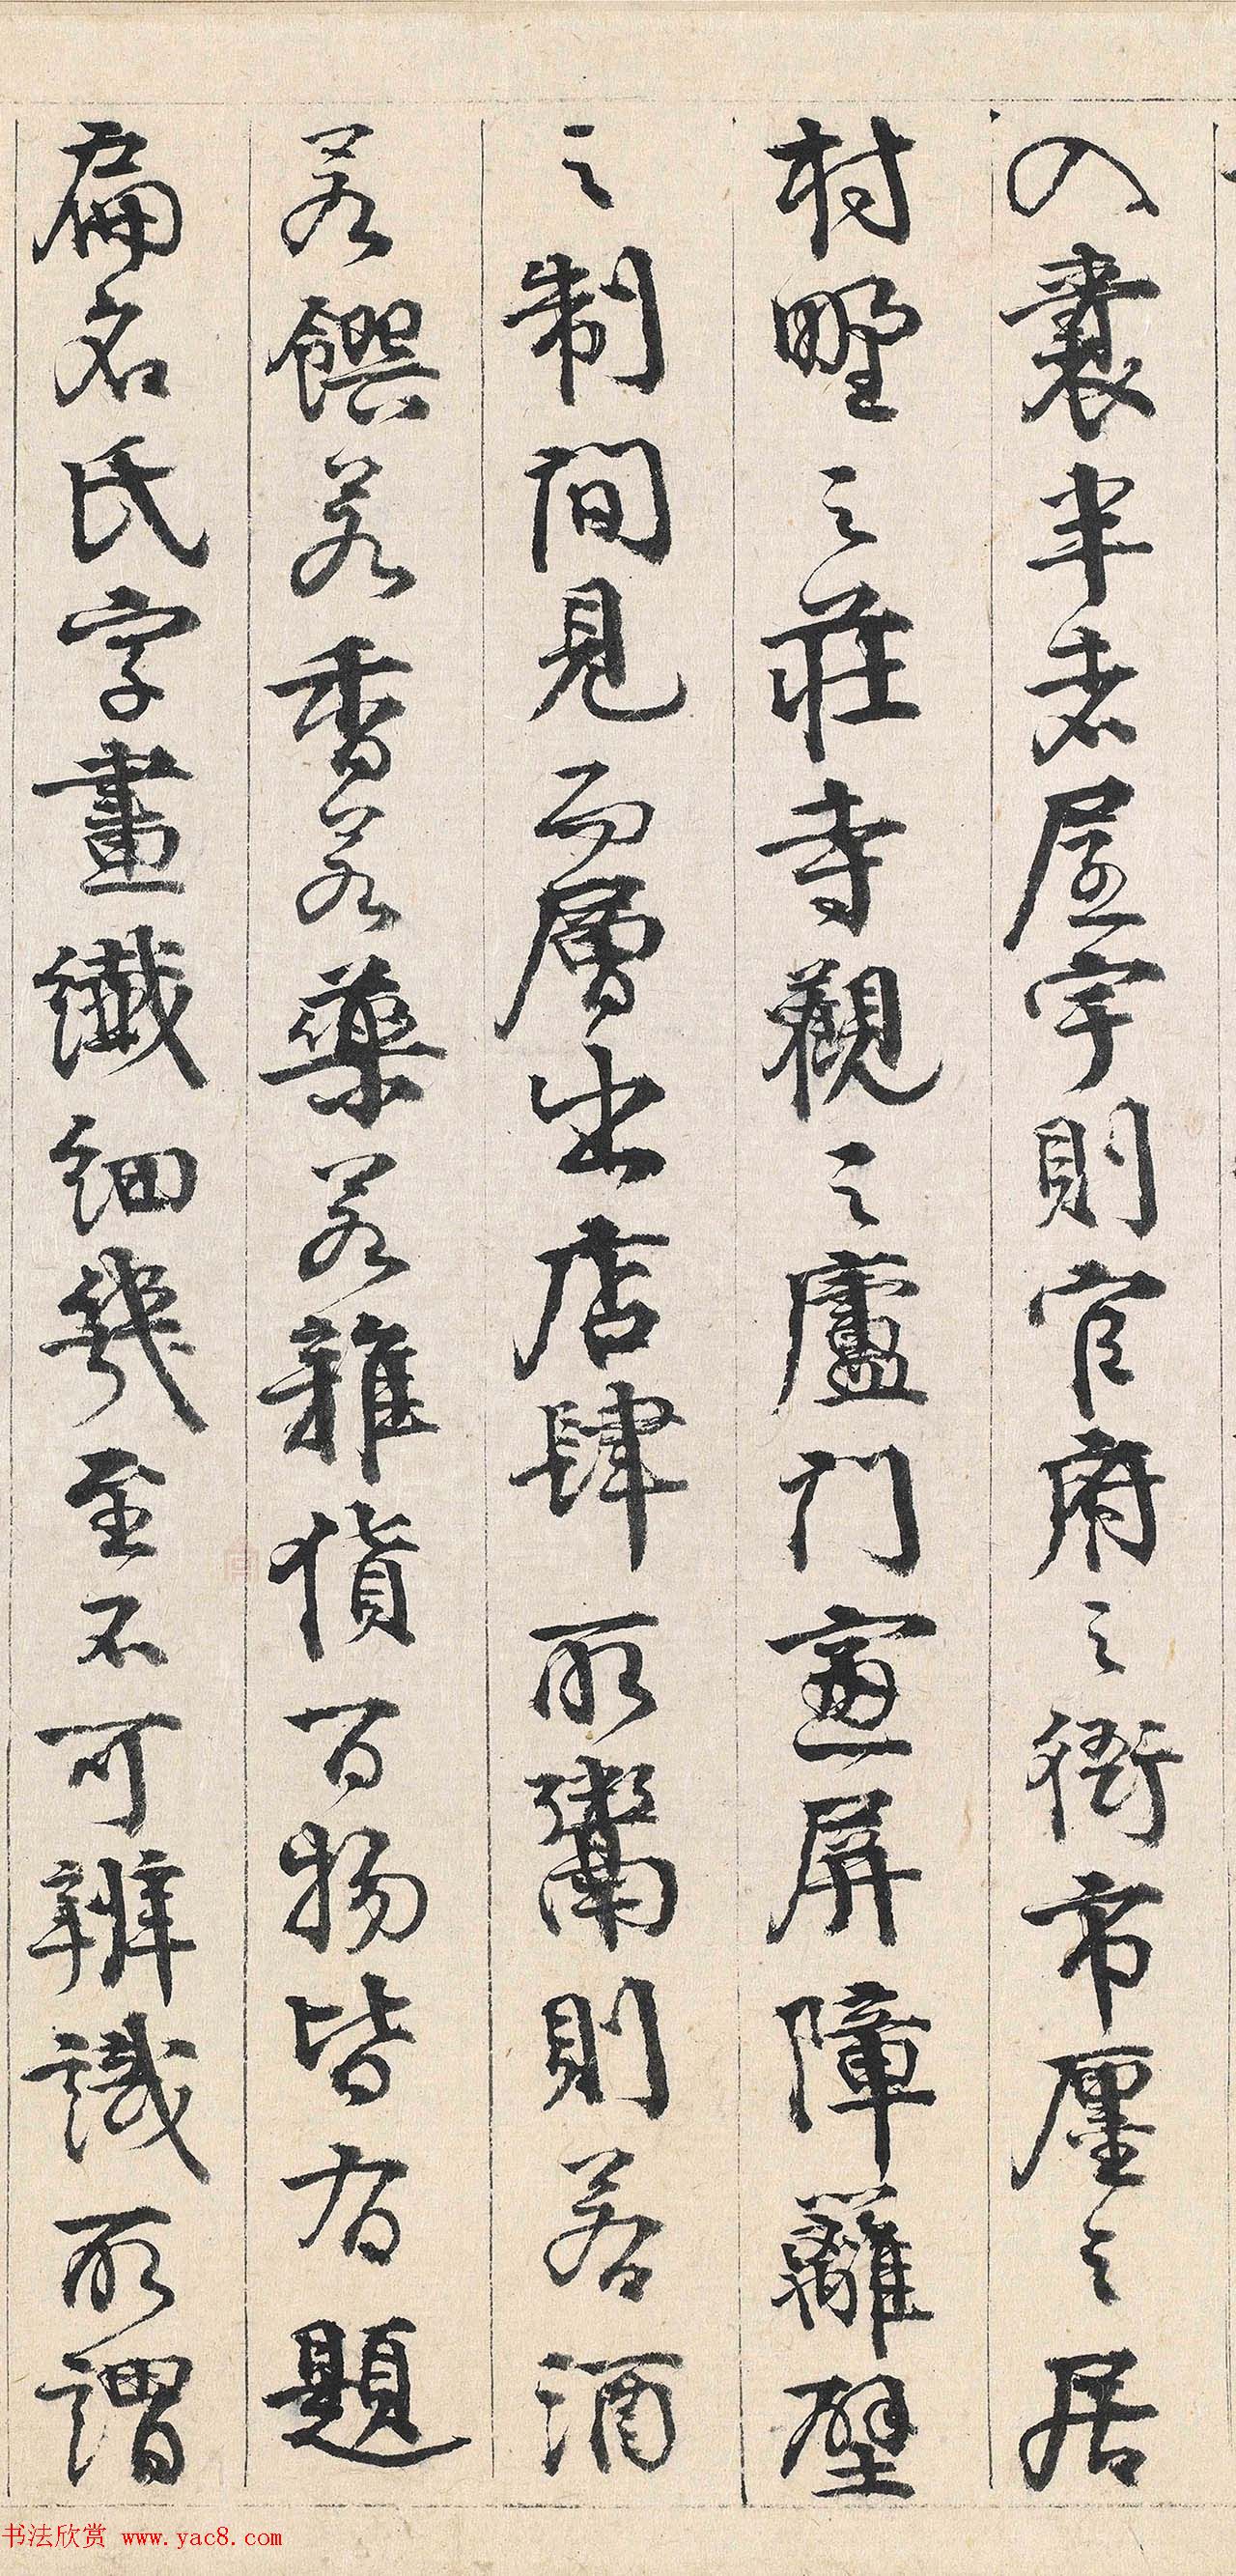 入囊半者屋宇則官府之衙市廛之居
村野之莊寺觀之廬門窻屏障籬壁
之制間見而層出店肆所鬻則若酒
若饌若香若藥若雜貨百物皆有題
扁名氏字畫纖細幾至不可辨識所謂
书法欣赏 www.yac8.com